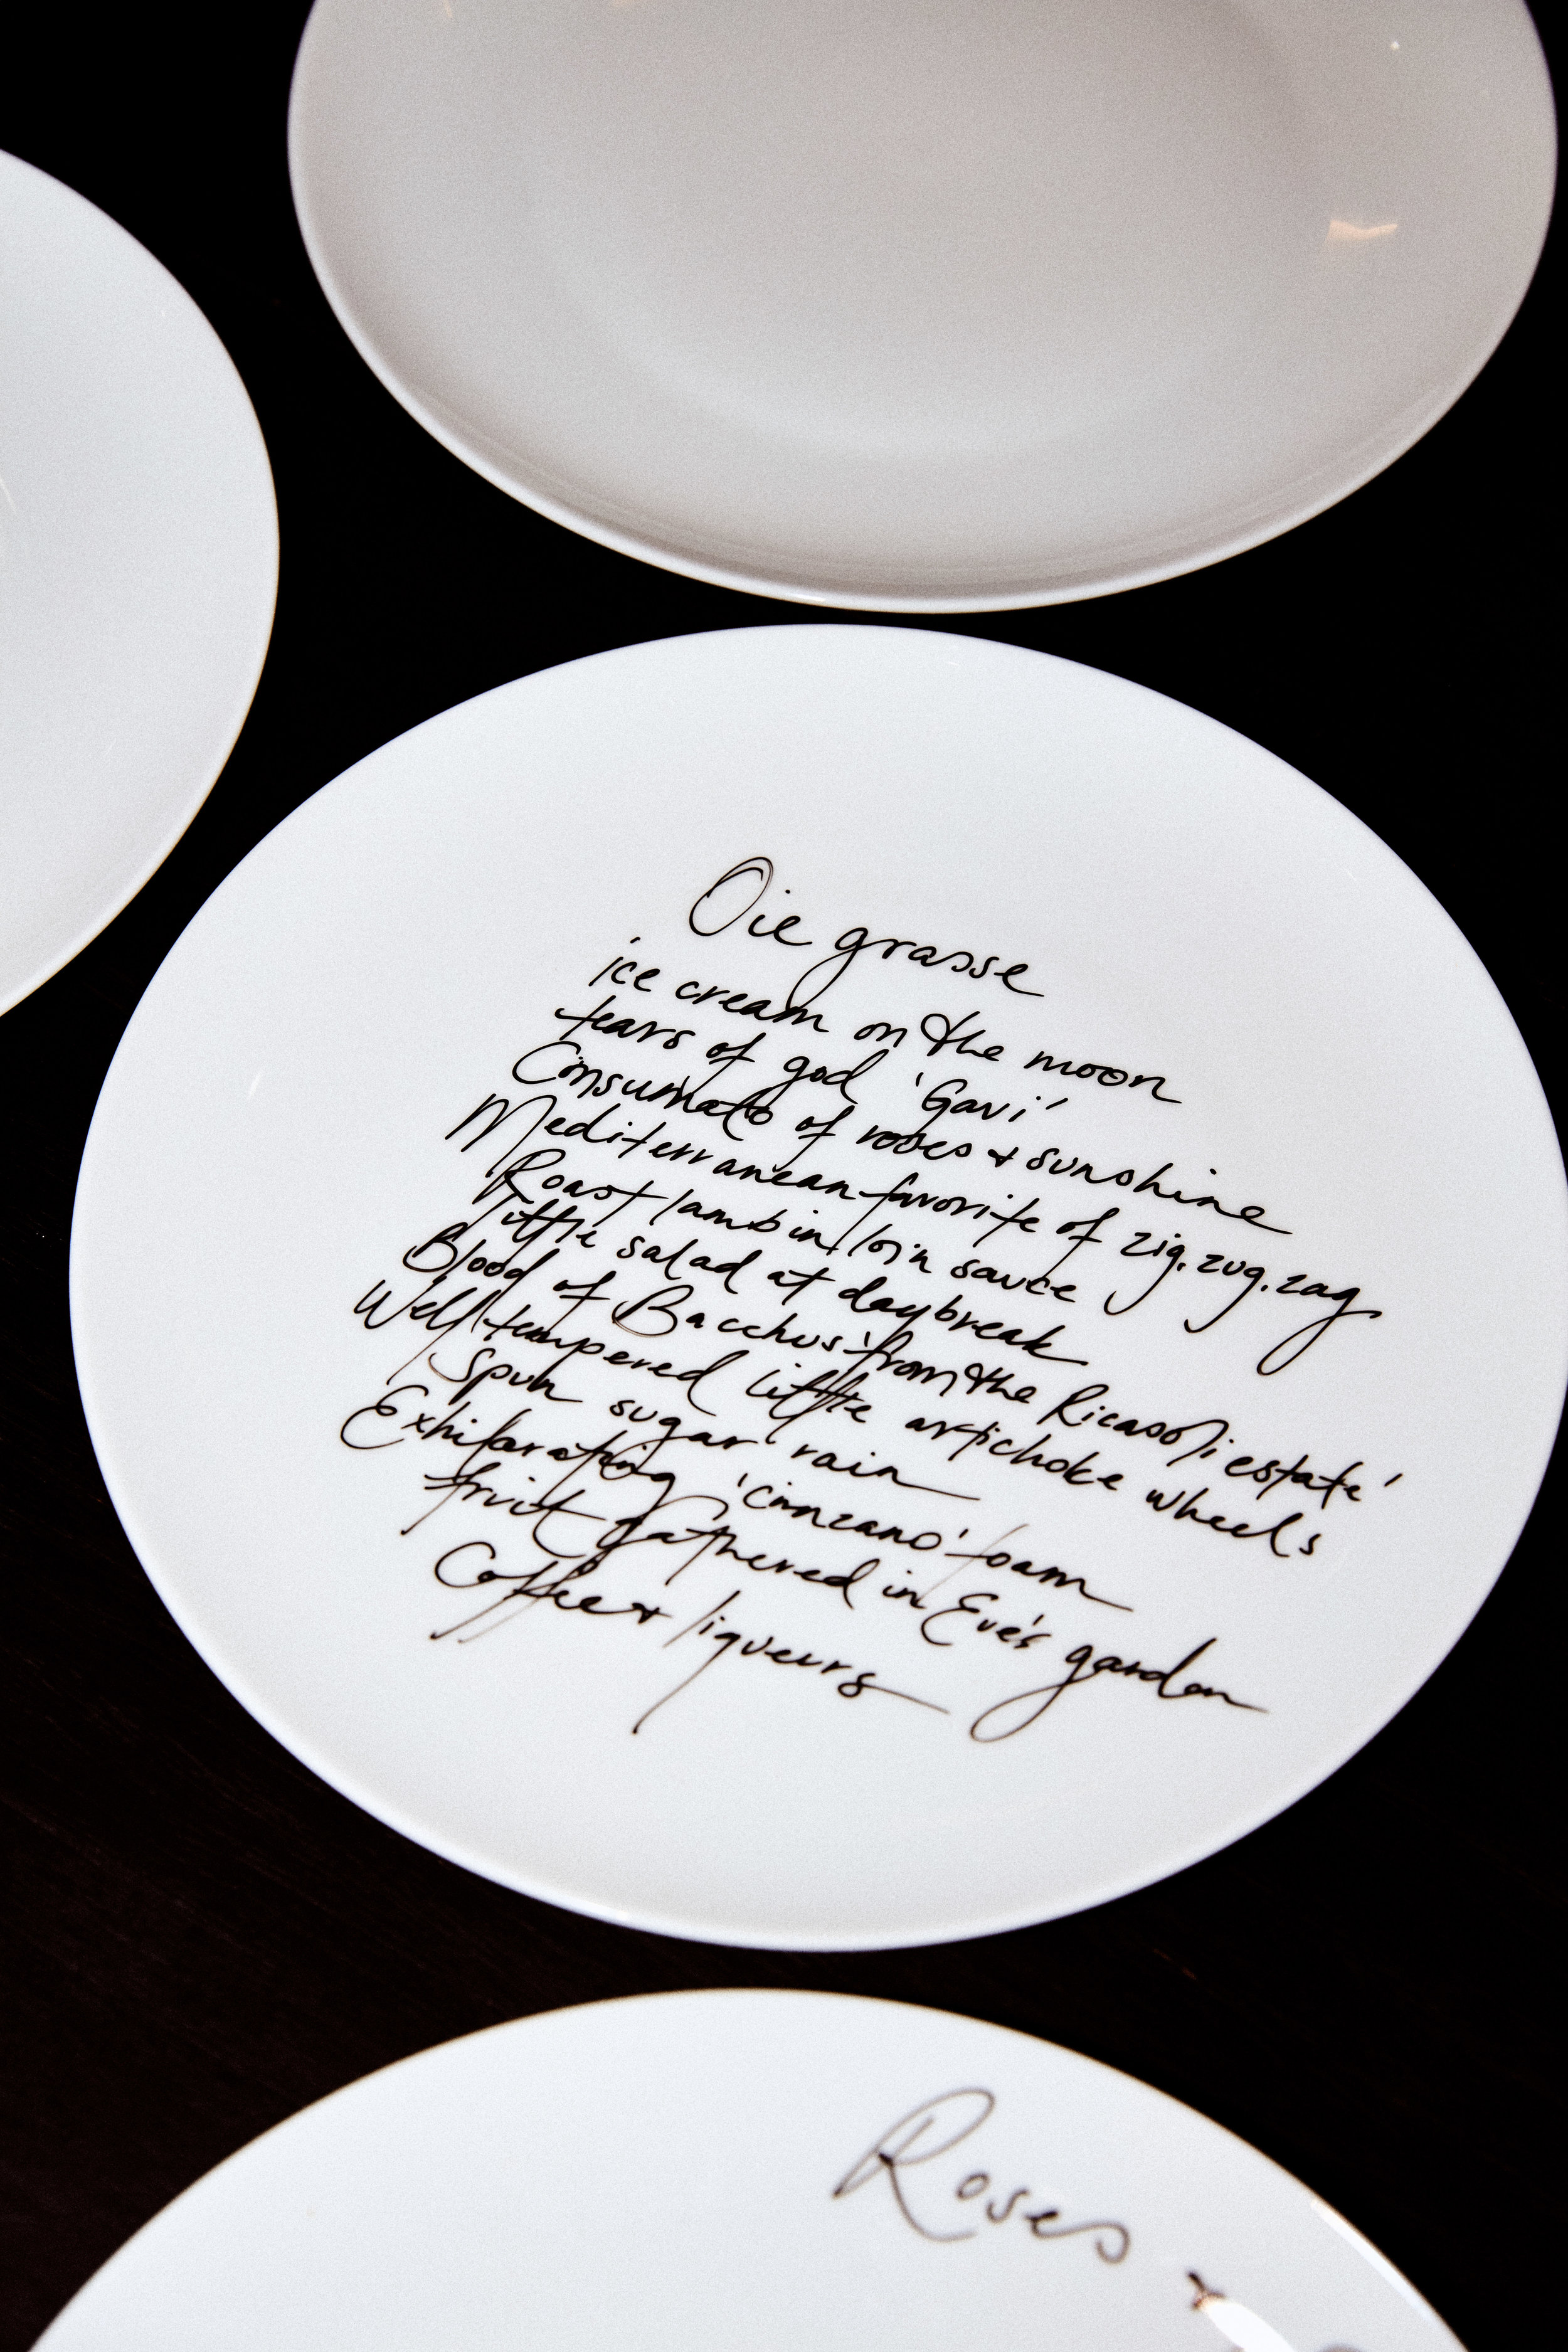 Oie grasse
ice cream on the moon
tears of god 'Gavi'
Consumate of roses + sunshine
Mediterranean favorite of zig.zug.zag
Roast lamb in loin sauce
little salad at daybreak
Blood of Bacchus 'from the Ricasoli estate'
Well tempered little artichoke wheels
Spun sugar rain
Exhilarating 'cinzano' foam
fruit gathered in Eve's garden
Coffee + liqueurs
Roses +